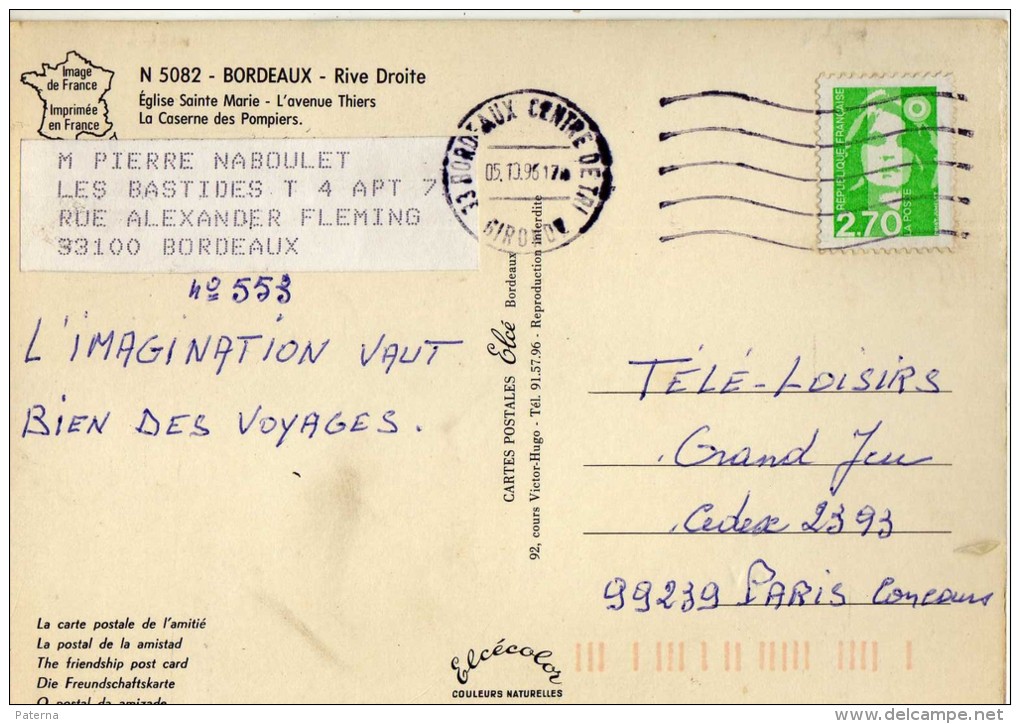 Image
de France
Imprimée
en France
N 5082 - BORDEAUX - Rive Droite
Église Sainte Marie - L'avenue Thiers
La Caserne des Pompiers.
M PIERRE NABOULET
LES BASTIDES T 4 APT 7
RUE ALEXANDER FLEMING
33100 BORDEAUX
33 BORDEAUX CENTRE DE TRI
05.10.96 17H
GIRONDE
RÉPUBLIQUE FRANÇAISE
2.70
LA POSTE
nº 553
L'IMAGINATION VAUT
BIEN DES VOYAGES.
CARTES POSTALES Elcé Bordeaux
92, cours Victor-Hugo - Tél. 91.57.96 - Reproduction interdite
TÉLÉ-LOISIRS
Grand Jeu
Cedex 2393
99239 PARIS Concours
La carte postale de l'amitié
La postal de la amistad
The friendship post card
Die Freundschaftskarte
O postal da amizade
Elcécolor
COULEURS NATURELLES
Paterna
delcampe.net